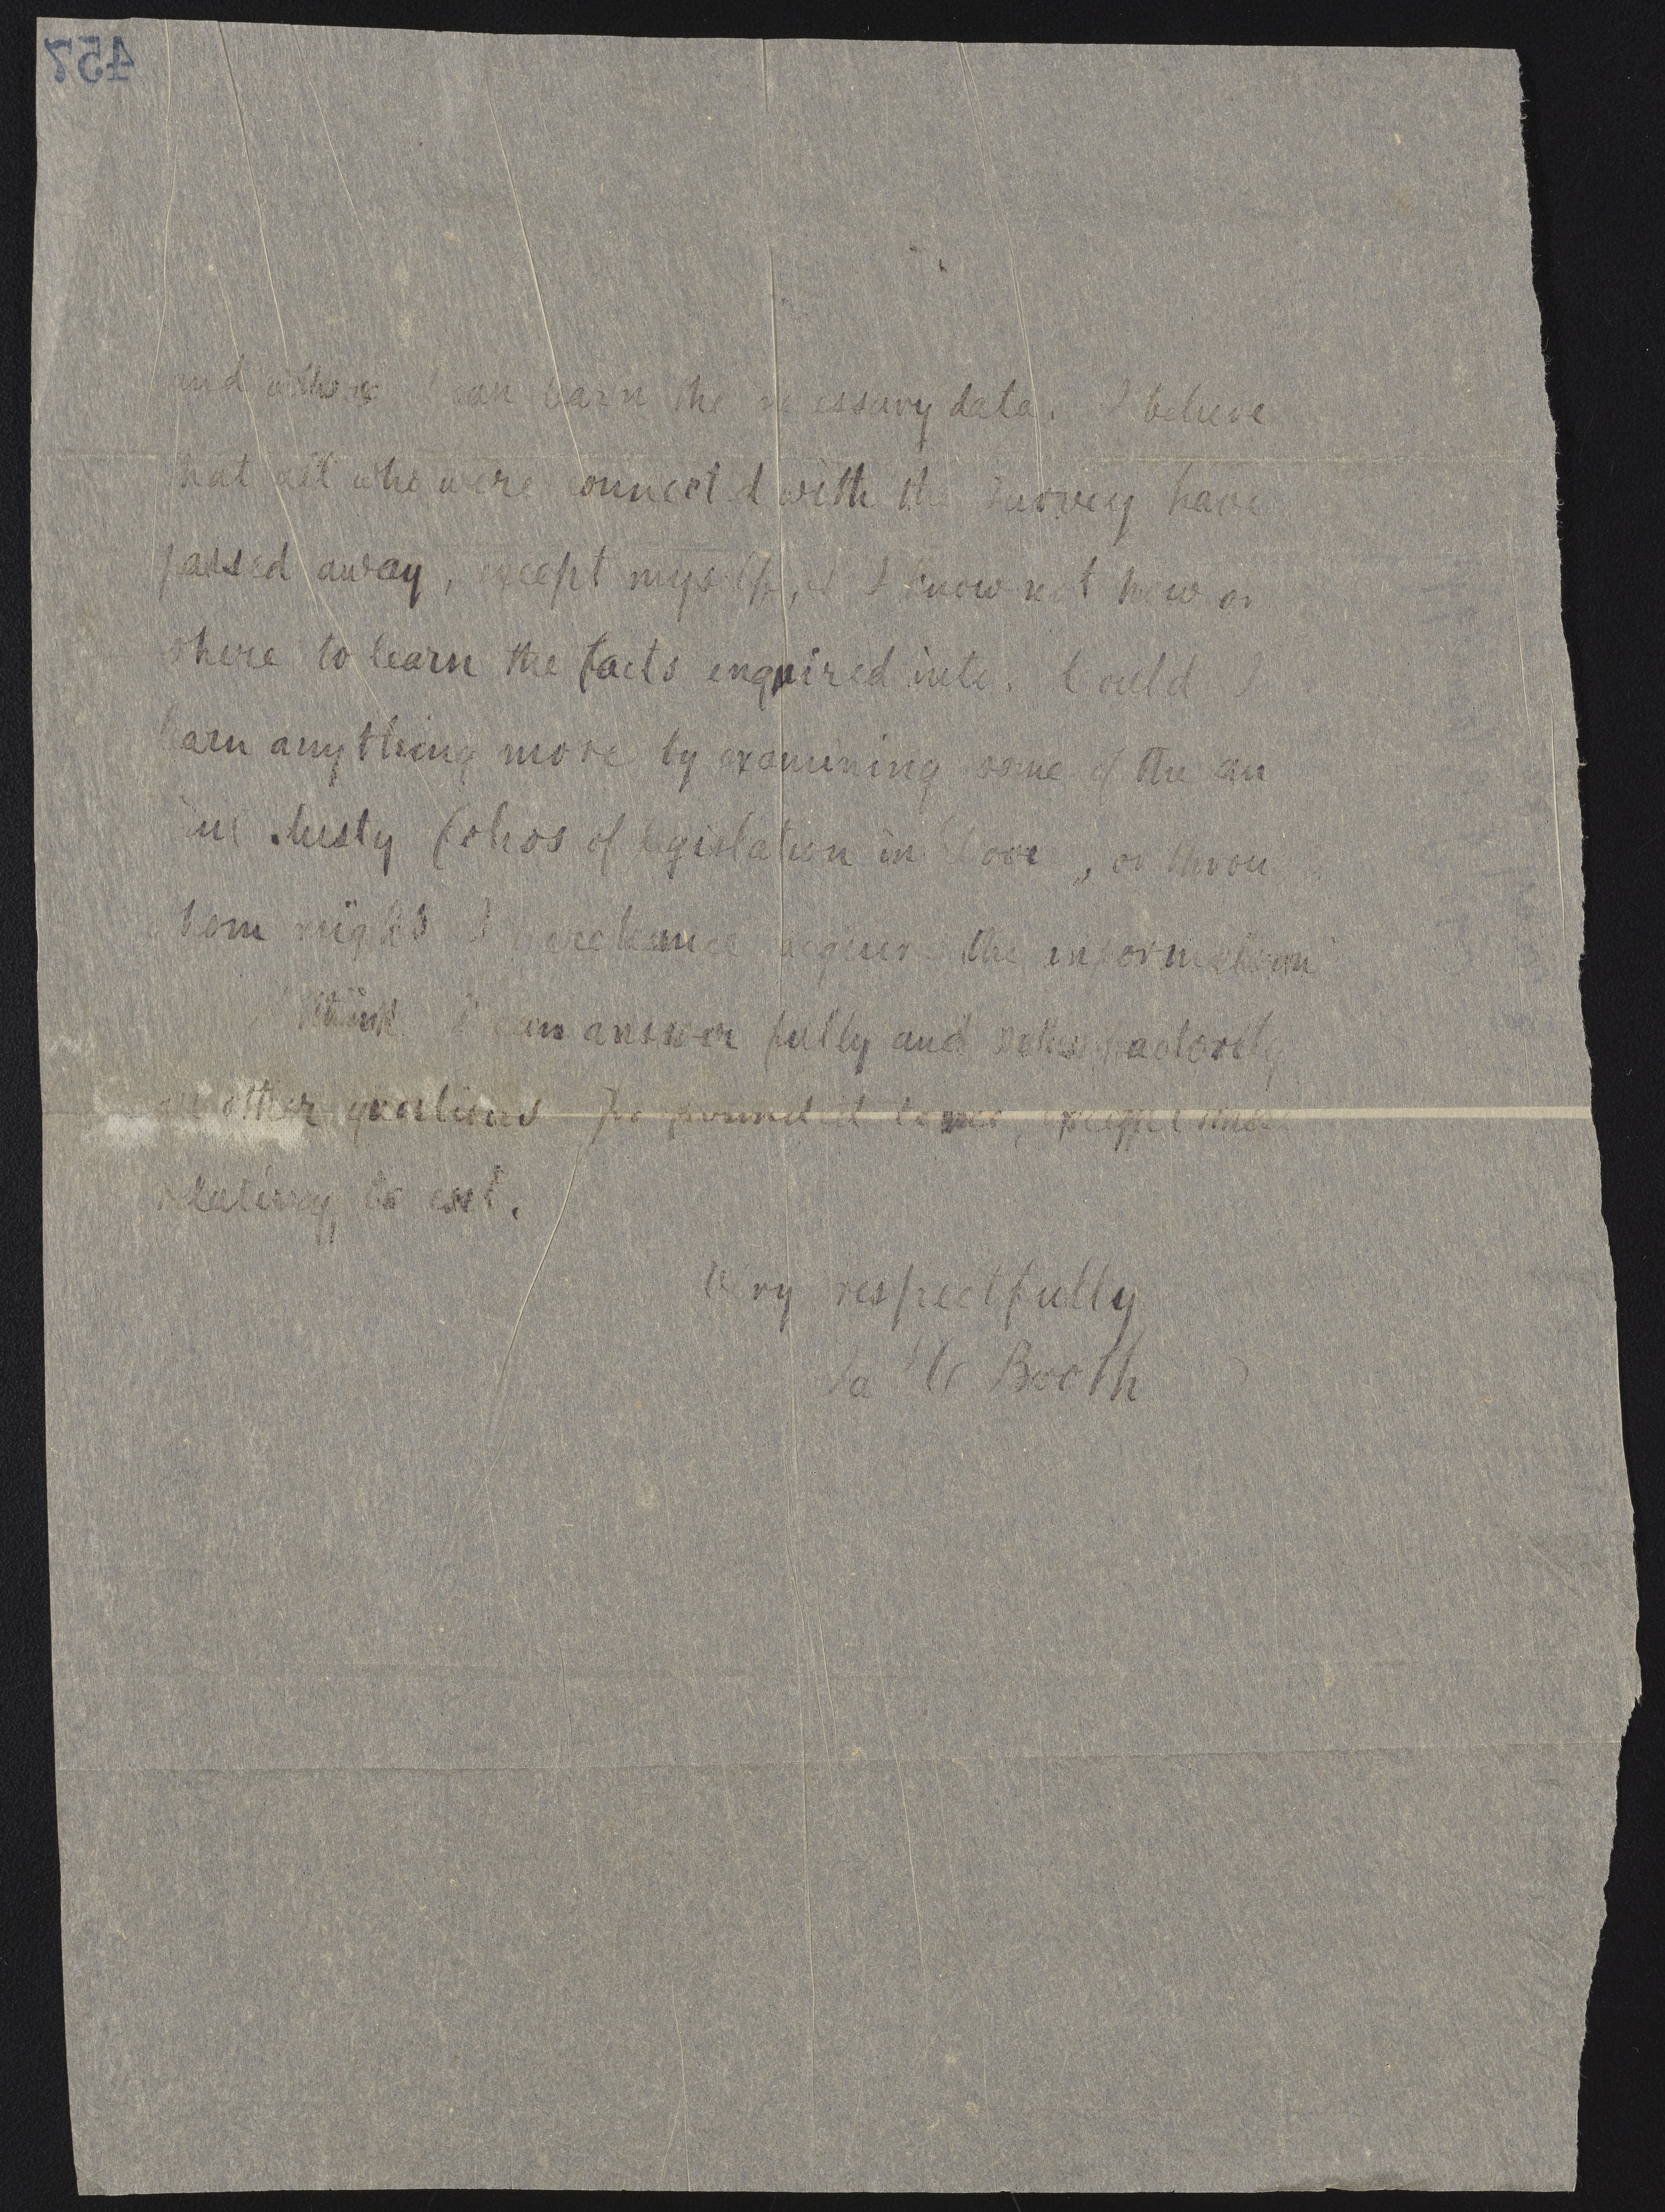 457
and where I can learn the necessary data. I believe
that all who were connected with the survey have
passed away, except myself, & I know not how or
where to learn the facts enquired into. Could I
learn anything more by examining some of the an
dusty folios of legislation in Dover, or throu
whom might I perchance acquire the information
I think I can answer fully and satisfactorily
all other questions propounded to me, except those
relating to cost.
Very respectfully
Ja C Booth